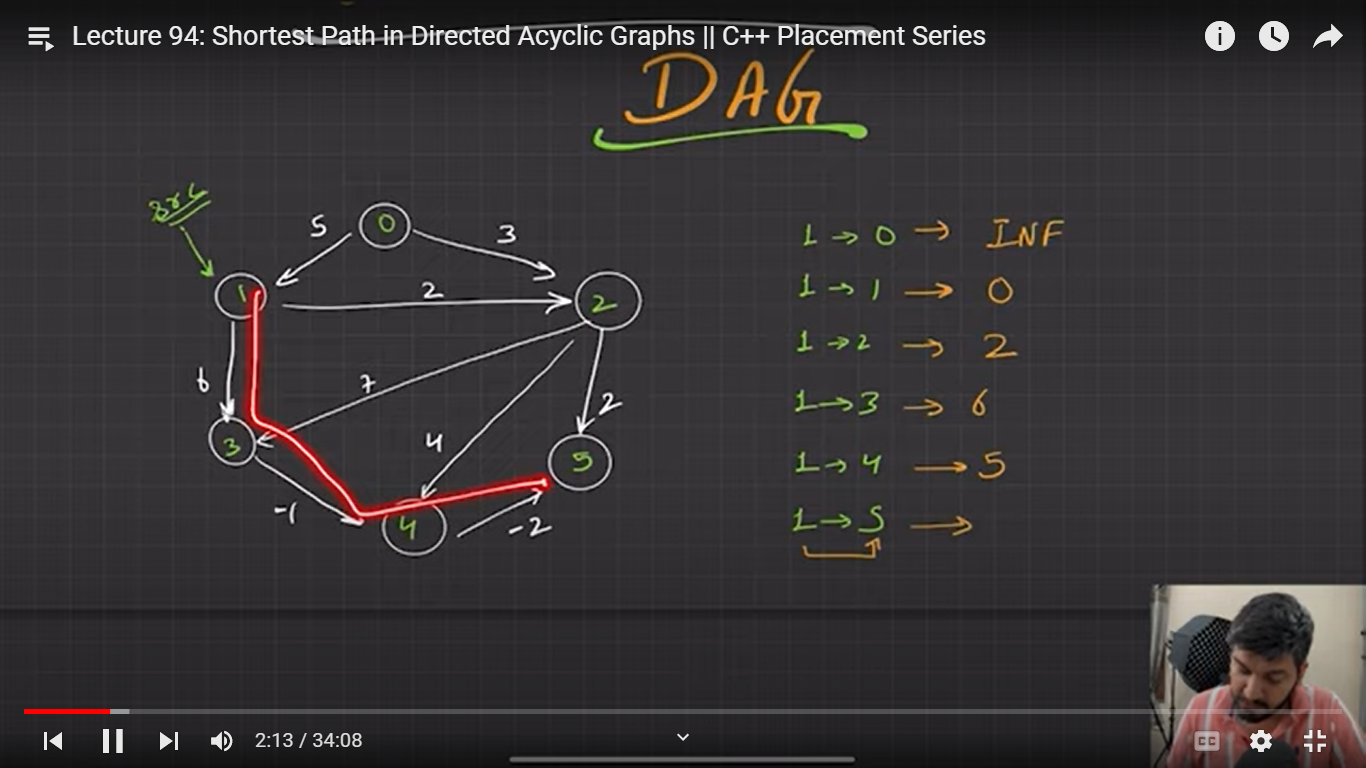 Lecture 94: Shortest Path in Directed Acyclic Graphs || C++ Placement Series
DAG
src
5
0
3
1
2
2
6
7
4
2
3
5
-1
4
-2
1 → 0 → INF
1 → 1 → 0
1 → 2 → 2
1 → 3 → 6
1 → 4 → 5
1 → 5 →
2:13 / 34:08
CC